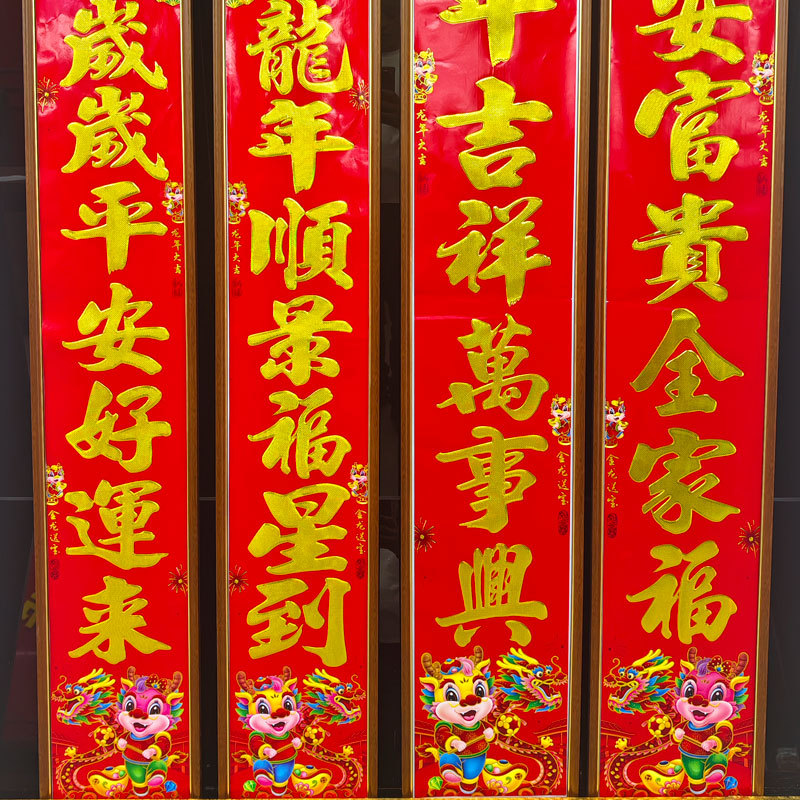 安富貴全家福
龙年大吉
金龙送宝
年吉祥萬事興
龙年大吉
金龙送宝
龍年順景福星到
龙年大吉
金龙送宝
歲歲平安好運来
龙年大吉
金龙送宝